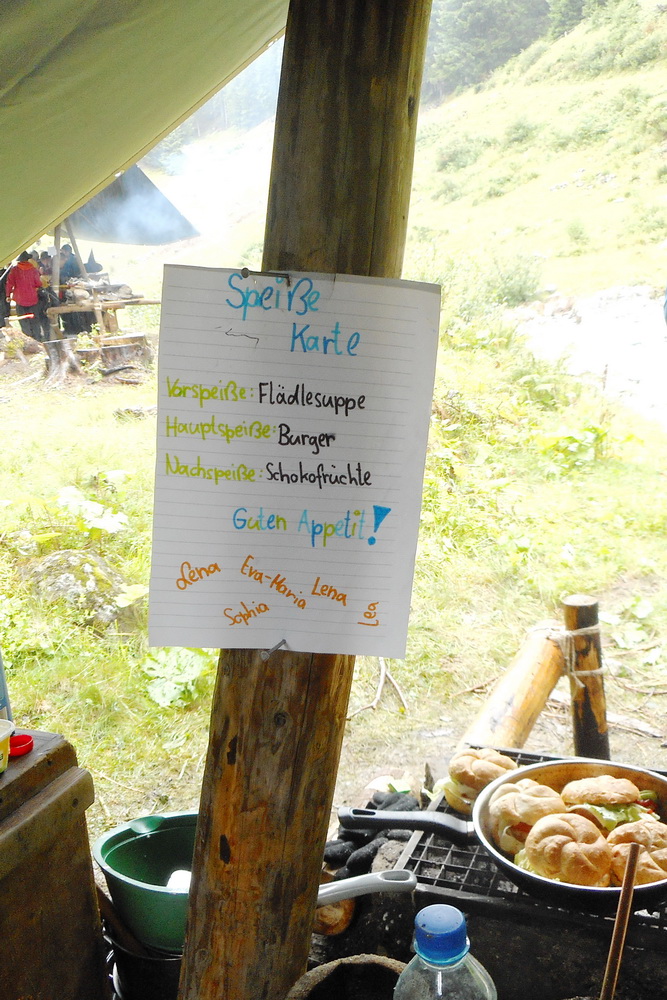 Speiße
Karte
Vorspeiße: Flädlesuppe
Hauptspeiße: Burger
Nachspeiße: Schokofrüchte
Guten Appetit!
Lena Eva-Maria Lena
Sophia Lea